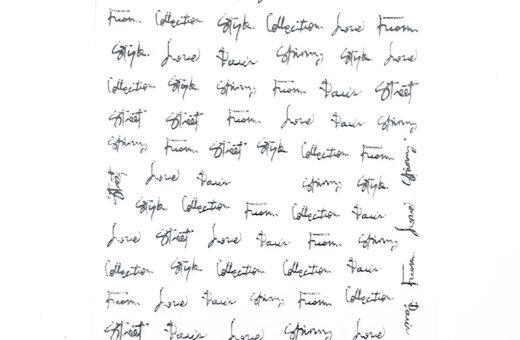 From Collection Style Collection Love From
Style Love Paris Strong Style Love
Collection Style Strong From Paris Street
Street Street From Love Paris Strong
Strong From Street Style Collection From
Love Paris Strong Style
Style Collection From Collection Paris
Love Street Love Paris From Strong
Collection Style Collection Collection Paris
From Love Paris Strong From Collection
Street Paris Love Strong Love
Love
From
Paris